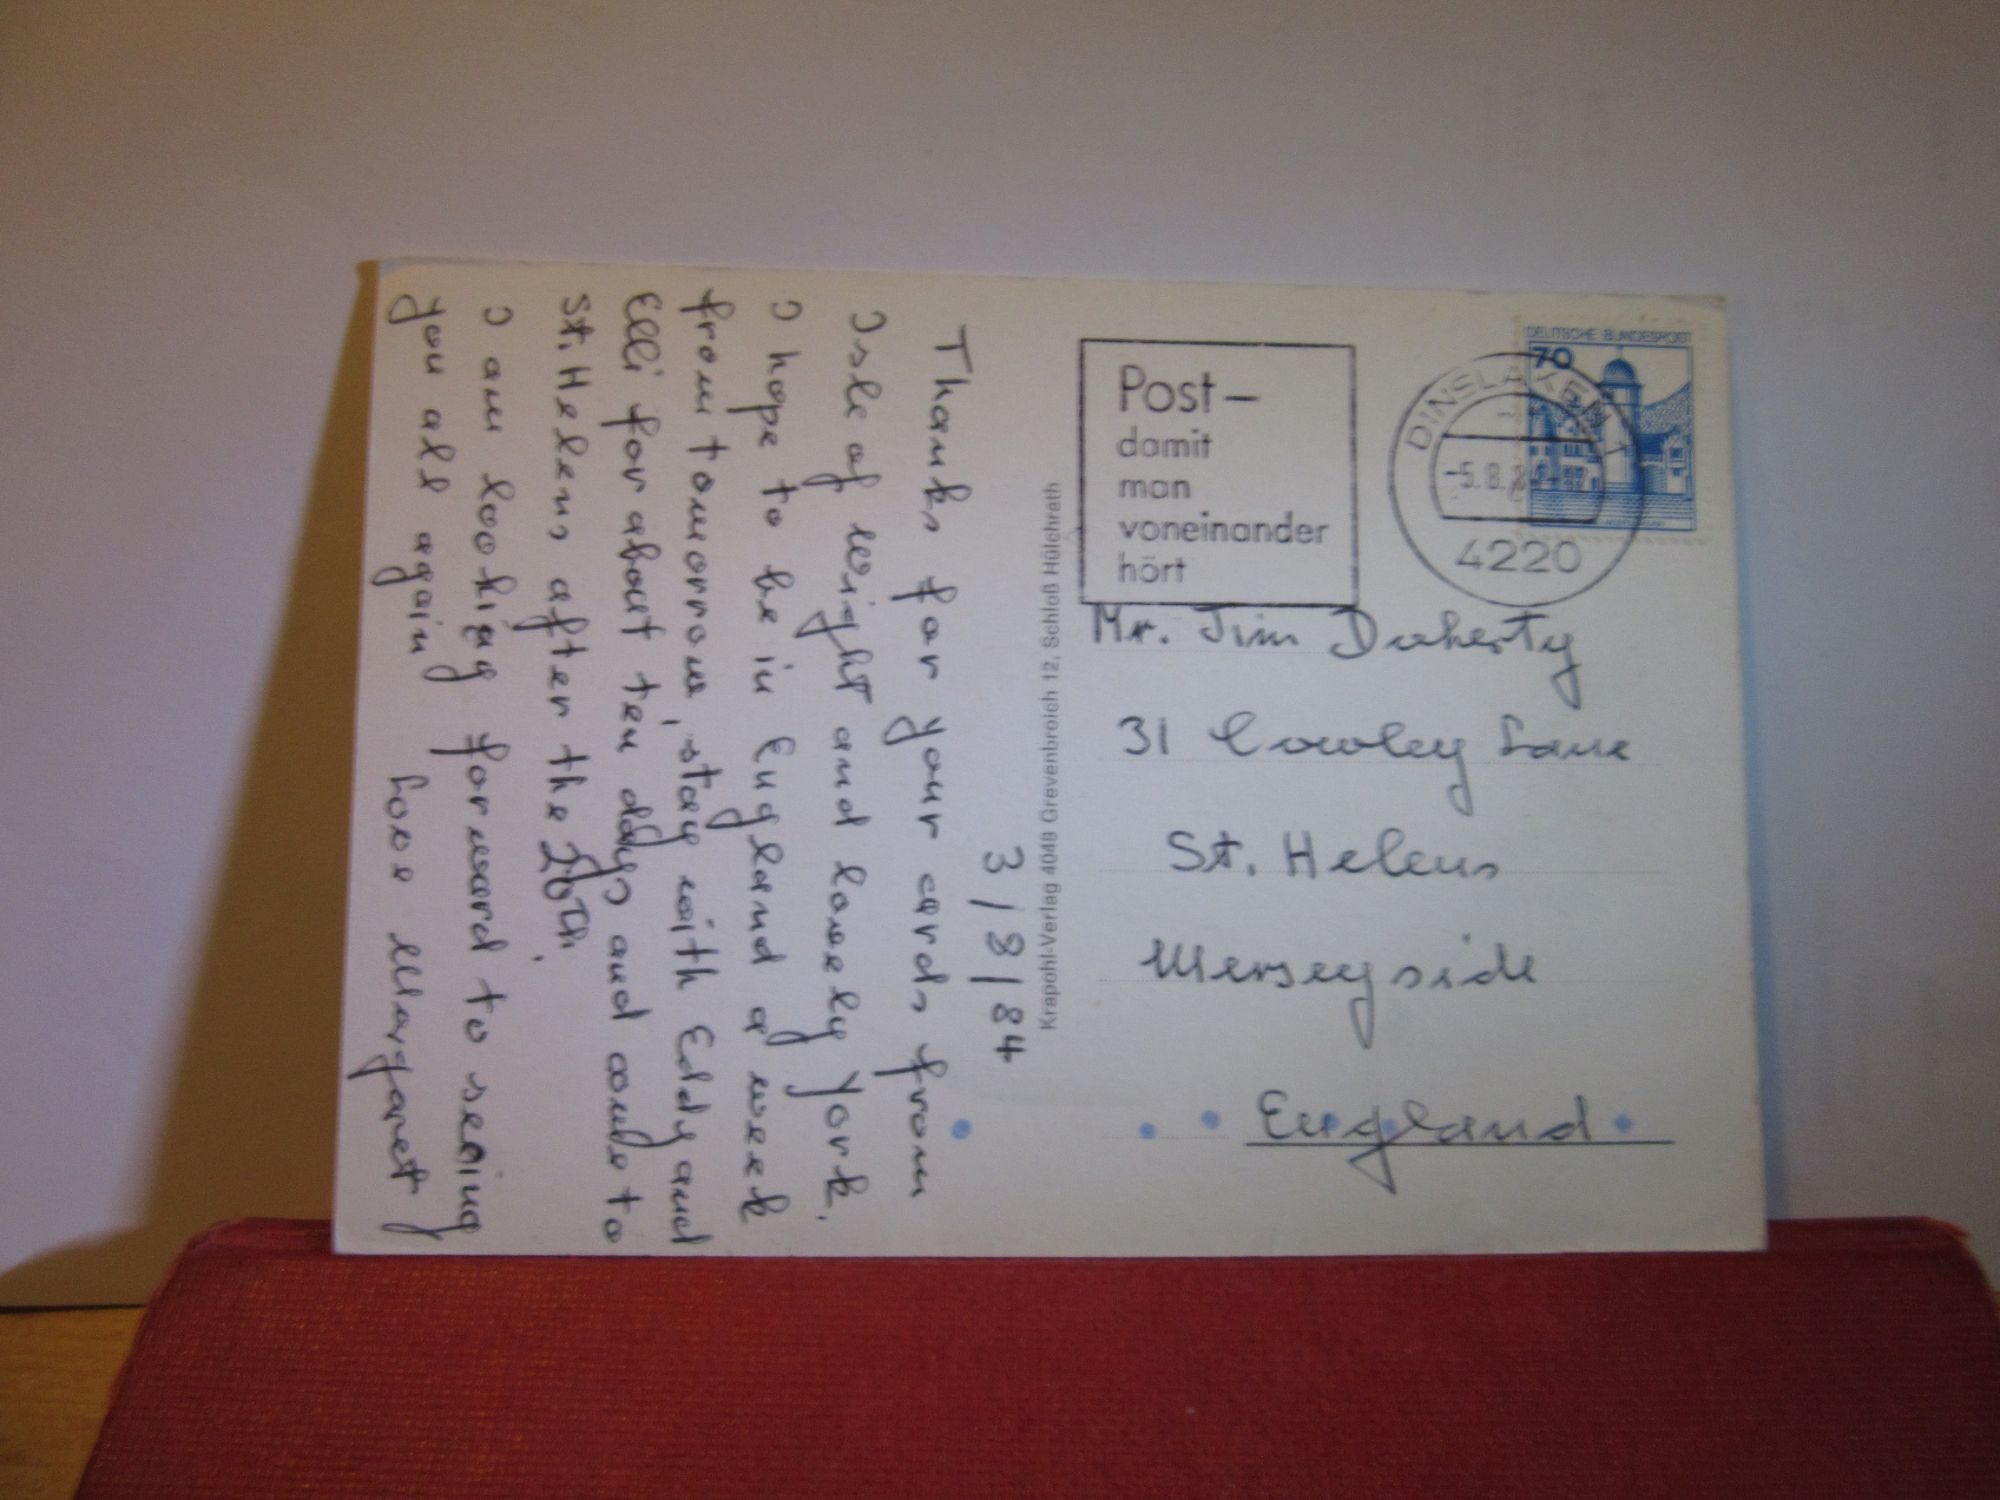 3/8/84
Thanks for your cards from
Isle of Wight and lovely York.
I hope to be in England a week
from tomorrow, stay with Eddy and
Elli for about ten days and come to
St. Helens after the 20th.
I am looking forward to seeing
you all again
Love Margaret
Krapohl-Verlag 4048 Grevenbroich 12, Schloß Hülchrath
Post-
damit
man
voneinander
hört
DINSLAKEN 1
-5.8.84
4220
DEUTSCHE BUNDESPOST
70
Mr. Jim Doherty
31 Cowley Lane
St. Helens
Merseyside
England